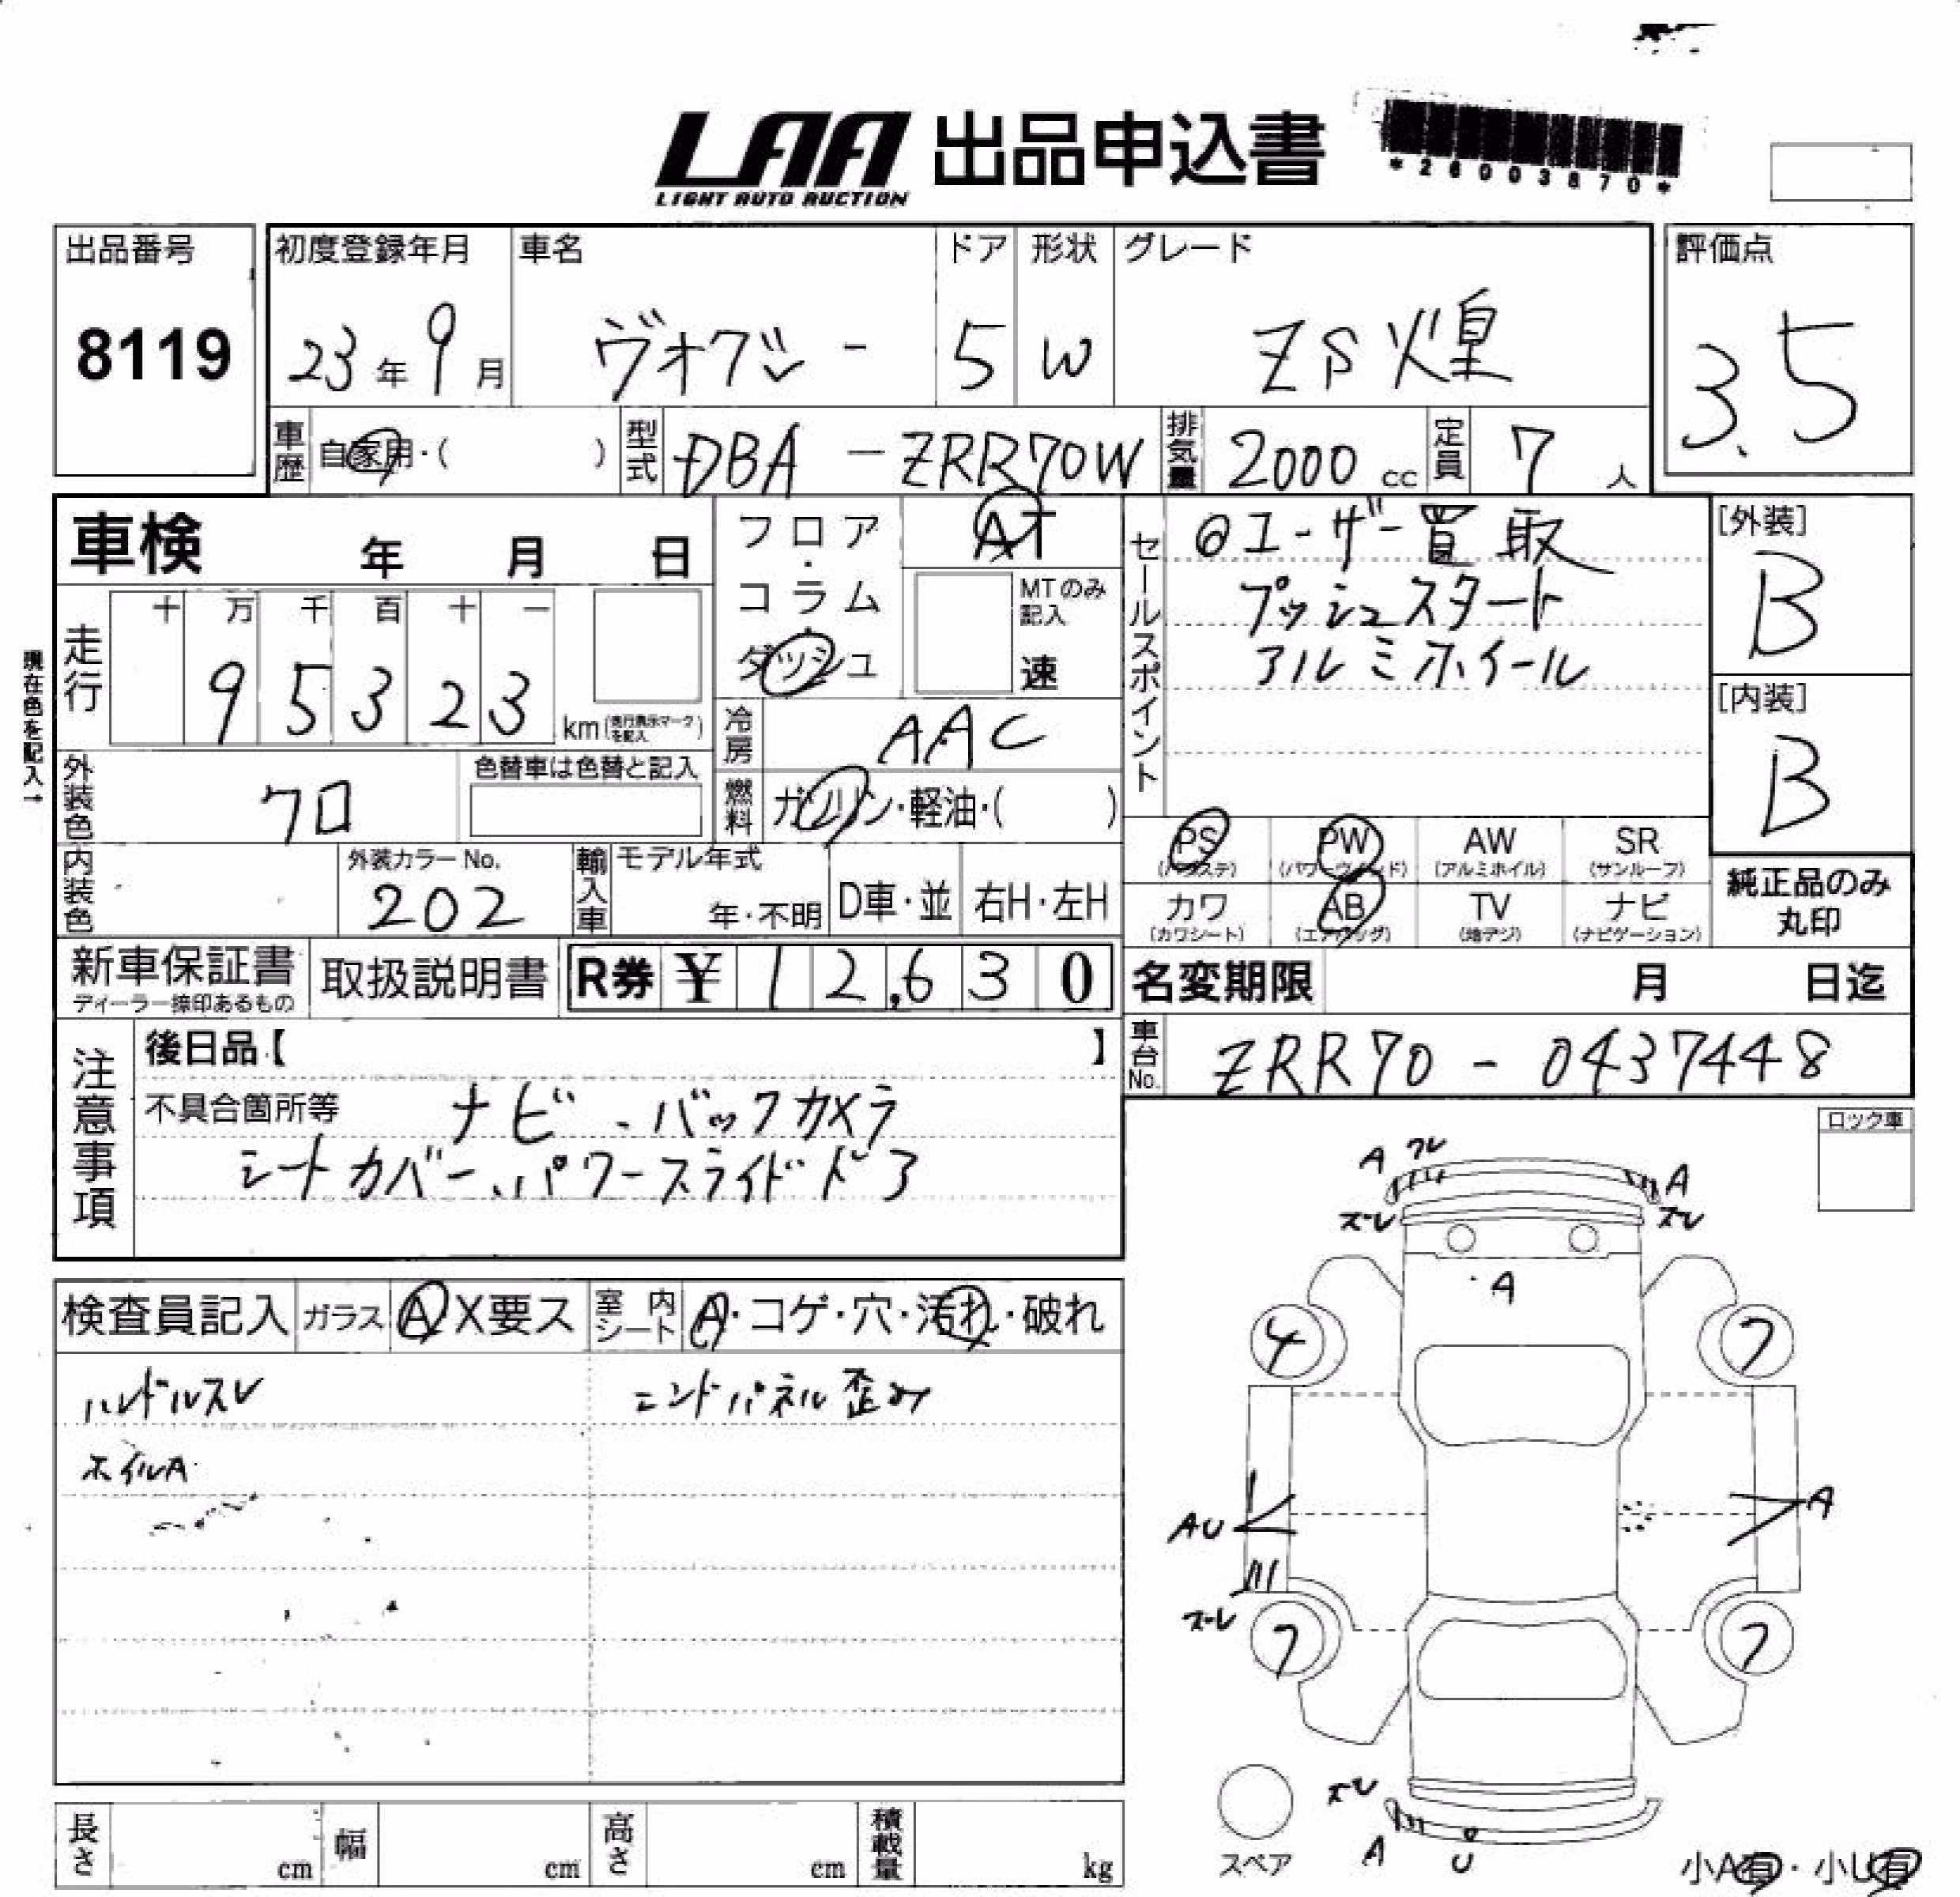 LAA 出品申込書
LIGHT AUTO AUCTION
*26003870*
出品番号
8119
初度登録年月
23年9月
車名
ヴォクシー
ドア
5
形状
W
グレード
ZS煌
評価点
3.5
車歴 自家用・( )
型式 DBA-ZRR70W
排気量 2000 cc
定員 7人
車検 年 月 日
フロア・コラム・ダッシュ
AT
MTのみ記入
速
セールスポイント
◎ユーザー買取
プッシュスタート
アルミホイール
[外装]
B
[内装]
B
現在色を記入→
走行
十 万 千 百 十 一
9 5 3 2 3
km(走行表示マークを記入)
冷房 AAC
外装色 クロ
色替車は色替と記入
燃料 ガソリン・軽油・( )
PS (パワステ)
PW (パワーウィンド)
AW (アルミホイル)
SR (サンルーフ)
カワ (カワシート)
AB (エアバッグ)
TV (地デジ)
ナビ (ナビゲーション)
純正品のみ丸印
内装色
外装カラーNo.
202
輸入車
モデル年式
年・不明
D車・並
右H・左H
新車保証書
ディーラー捺印あるもの
取扱説明書
R券 ¥12,630
名変期限 月 日迄
車台No. ZRR70-0437448
注意事項
後日品【 】
不具合箇所等 ナビ、バックカメラ
シートカバー、パワースライドドア
ロック車
検査員記入
ガラス A X要ス
室内シート A・コゲ・穴・汚れ・破れ
ハンドルスレ
ホイルA
エンドパネル歪み
A ワレ
A
ズレ
ズレ
A
4
7
AU
A
ズレ
7
7
ズレ
A
U
スペア
小A有・小U有
長さ cm
幅 cm
高さ cm
積載量 kg